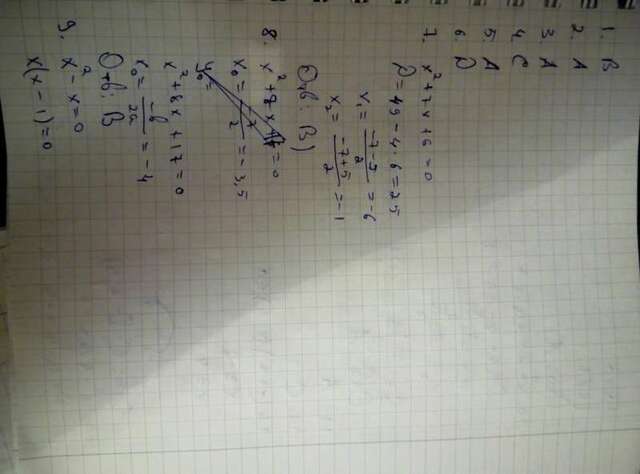 1. B
2. A
3. A
4. C
5. A
6. D
7. x² + 7x + 6 = 0
D = 49 - 4·6 = 25
x₁ = (-7-5)/2 = -6
x₂ = (-7+5)/2 = -1
Отв: B)
8. x² + 8x = 0
x₀ = -7/2 = -3,5
y₀ =
x² + 8x + 17 = 0
x₀ = -b/2a = -4
Отв: B
9. x² - x = 0
x(x - 1) = 0